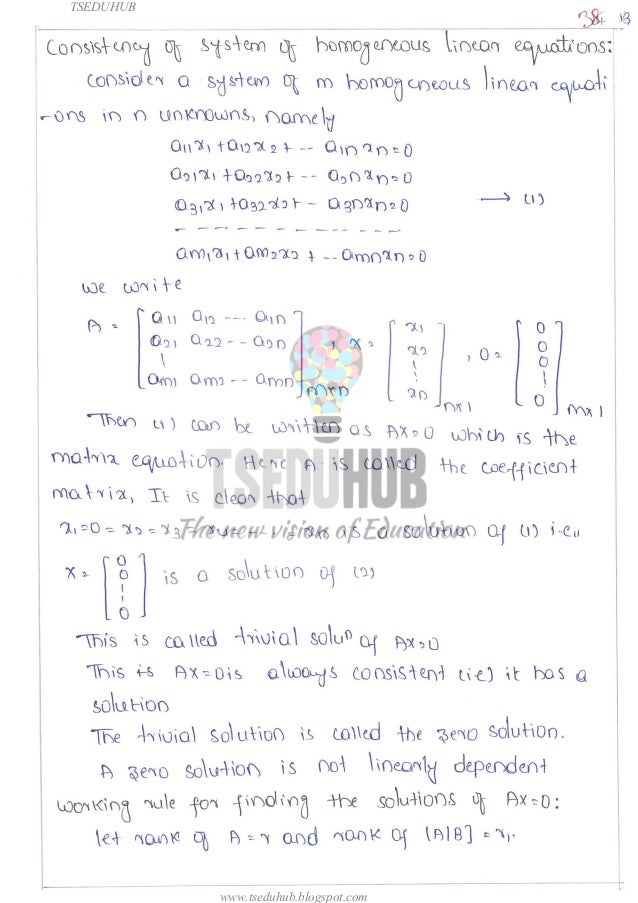 TSEDUHUB
38 13
Consistency of system of homogeneous linear equations:
Consider a system of m homogeneous linear equati
-ons in n unknowns, namely
a11x1+a12x2+ -- a1nxn=0
a21x1+a22x2+ -- a2nxn=0
a31x1+a32x2+ - a3nxn=0 → (1)
am1x1+am2x2 + -- amnxn=0
we write
A = [ a11 a12 --- a1n
a21 a22 -- a2n
am1 am2 -- amn ] m×n , x = [ x1 x2 xn ] n×1 , 0 = [ 0 0 0 0 ] m×1
Then (1) can be written as AX=0 which is the
matrix equation. Here A is called the coefficient
matrix, It is clear that
x1=0=x2=x3 as a solution of (1) i.e.,
X = [ 0 0 0 ] is a solution of (2)
This is called trivial solun of AX=0
This is AX=0 is always consistent (ie) it has a
solution
The trivial solution is called the zero solution.
A zero solution is not linearly dependent
working rule for finding the solutions of AX=0:
let rank of A=r and rank of [A|B] =r1.
TSEDUHUB
The new vision of Education
www.tseduhub.blogspot.com